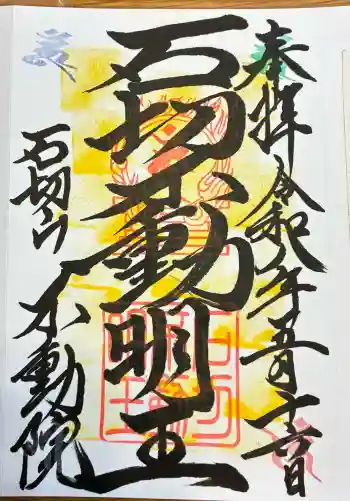 奉拝 令和八年五月十六日
石切不動明王
石切山 不動院